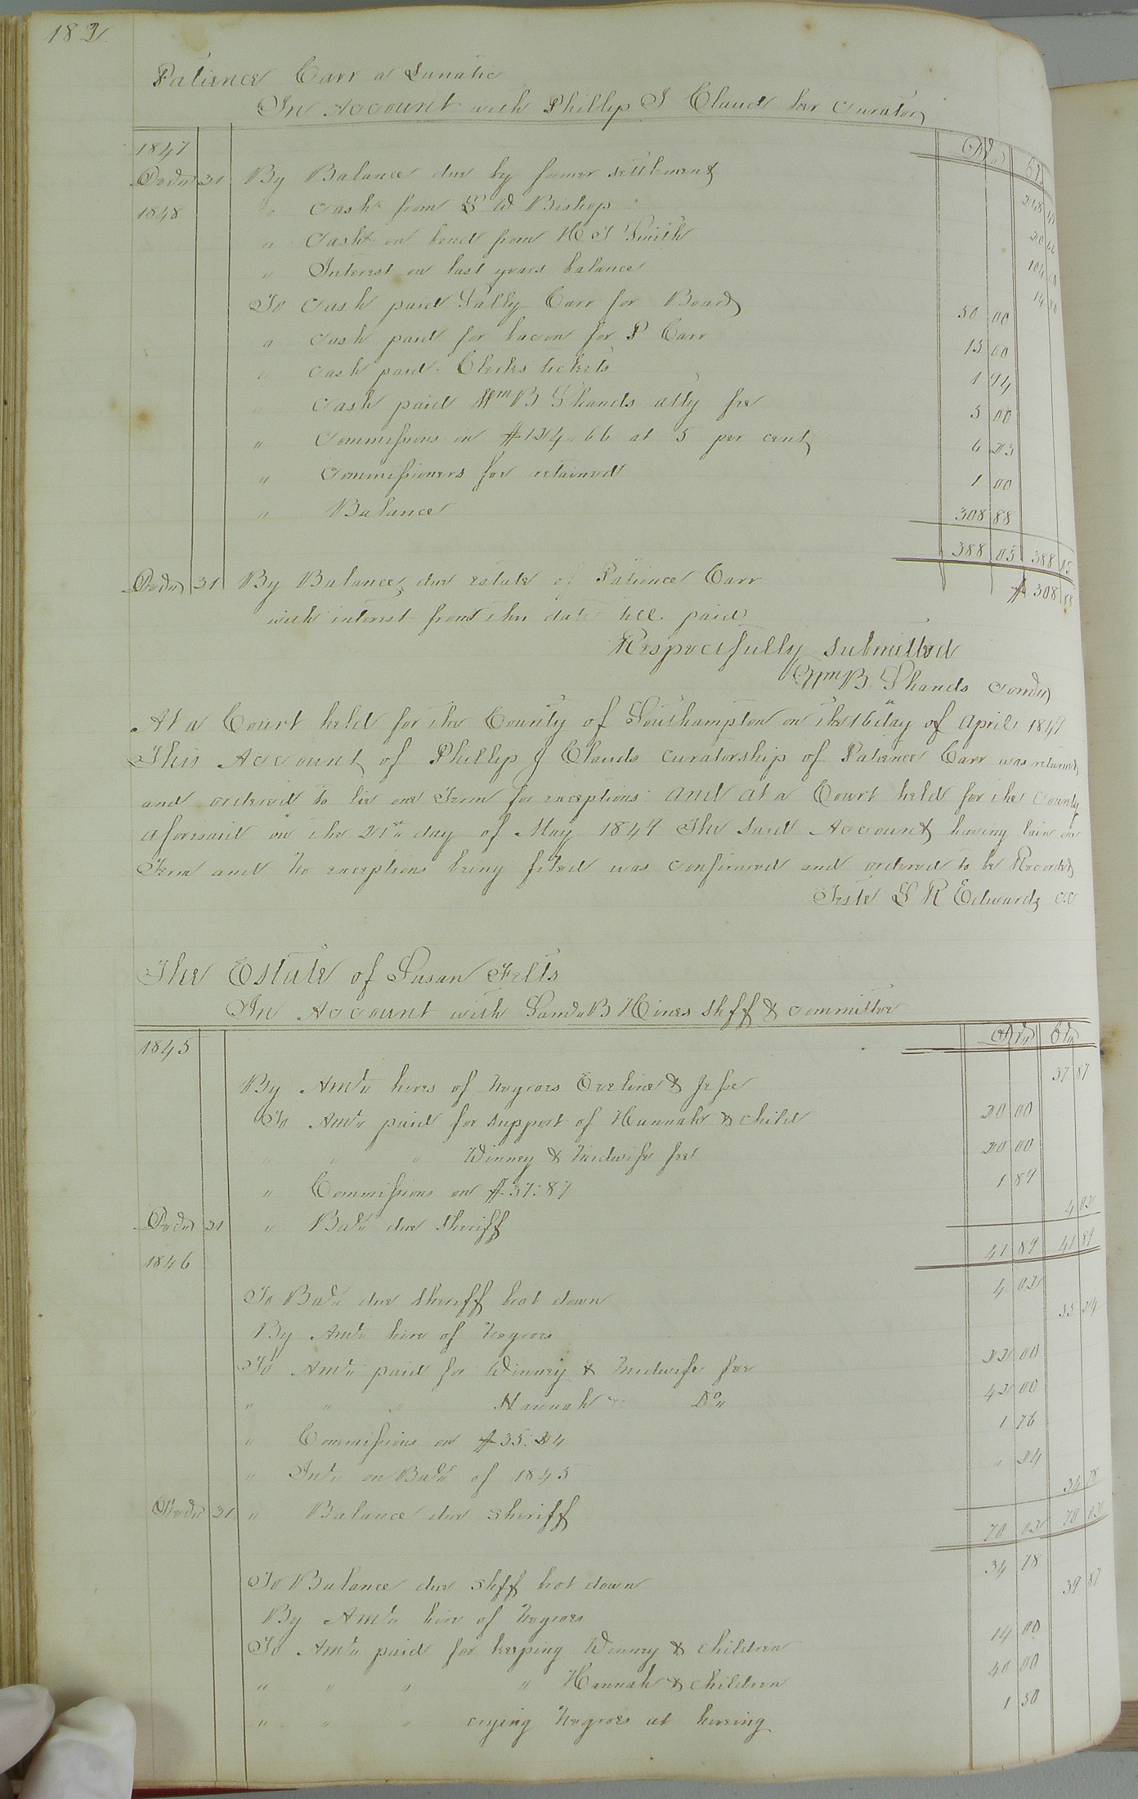 182
Patience Carr a Lunatic
In Account with Phillip J Claud her Curator
Drs Crs
1847
Decdr 31 By Balance due by former settlement
1848 " Cash from S W Bishop
" Cash on bond from H J Smith
" Interest on last years balance
To Cash paid Sally Carr for Board 50 00
" Cash paid for bacon for P Carr 15 00
" Cash paid Clerks tickets 1 94
" Cash paid Wm B Shands atty fee 5 00
" Commissions on $124.66 at 5 per cent 6 23
" Commissioners fee retained 1 00
" Balance 308 88
388 05 388 05
Decdr 31 By Balance due estate of Patience Carr $308 88
with interest from the date till paid
Respectfully submitted
Wm B. Shands Comdr
At a Court held for the County of Southampton on the 16 day of April 1849
This Account of Phillip J Clauds curatorship of Patience Carr was returned
and ordered to lie one Term for exceptions. And at a Court held for the County
aforesaid on the 21st day of May 1849 The said Account having lain one
Term and no exceptions being filed was confirmed and ordered to be Recorded
Teste L R Edwards CC
The Estate of Susan Felts
In Account with B Hines Shff & Committee
Drs Crs
1845
By Amt hires of Negroes Eveline & Jesse 37 87
To Amt paid for support of Hannah & child 20 00
" " " Winney & Midwife fee 20 00
" Commissions on $37.87 1 89
Decdr 31 " Bale due Sheriff 4 02
41 89 41 89
1846
To Bale due Sheriff brot down 4 02
By Amt hire of Negroes 35 24
To Amt paid for Winney & Midwife fee 22 00
" " " Hannah Do 42 00
" Commissions on $35.24 1 76
" Int on Bale of 1845 " 24
Decdr 31 " Balance due Sheriff 34 78
70 02 70 02
To Balance due Shff brot down 34 78
By Amt hire of Negroes 39 87
To Amt paid for keeping Winney & children 14 00
" " " " Hannah & children 40 00
" " " crying Negroes at hireing 1 50